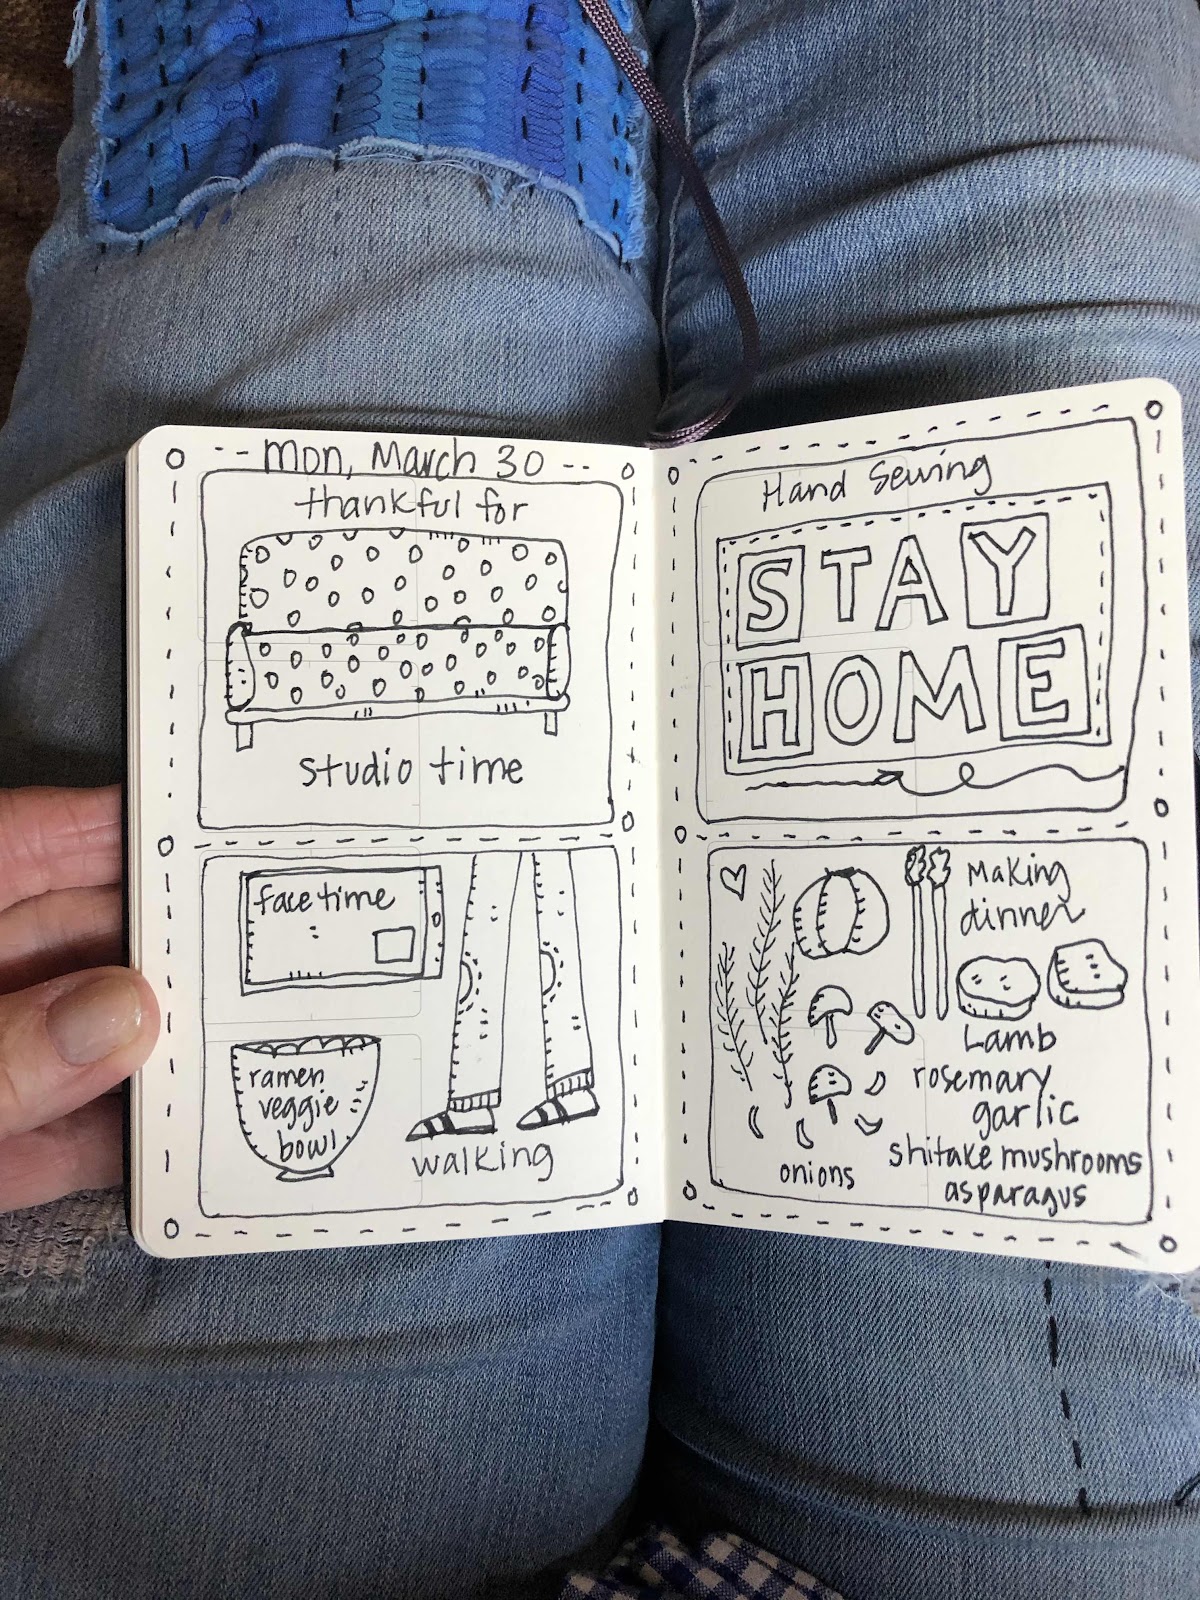 -- Mon, March 30 --
thankful for
studio time
facetime
ramen
veggie
bowl
walking
Hand Sewing
STAY
HOME
Making
dinner
Lamb
rosemary
garlic
shitake mushrooms
asparagus
onions